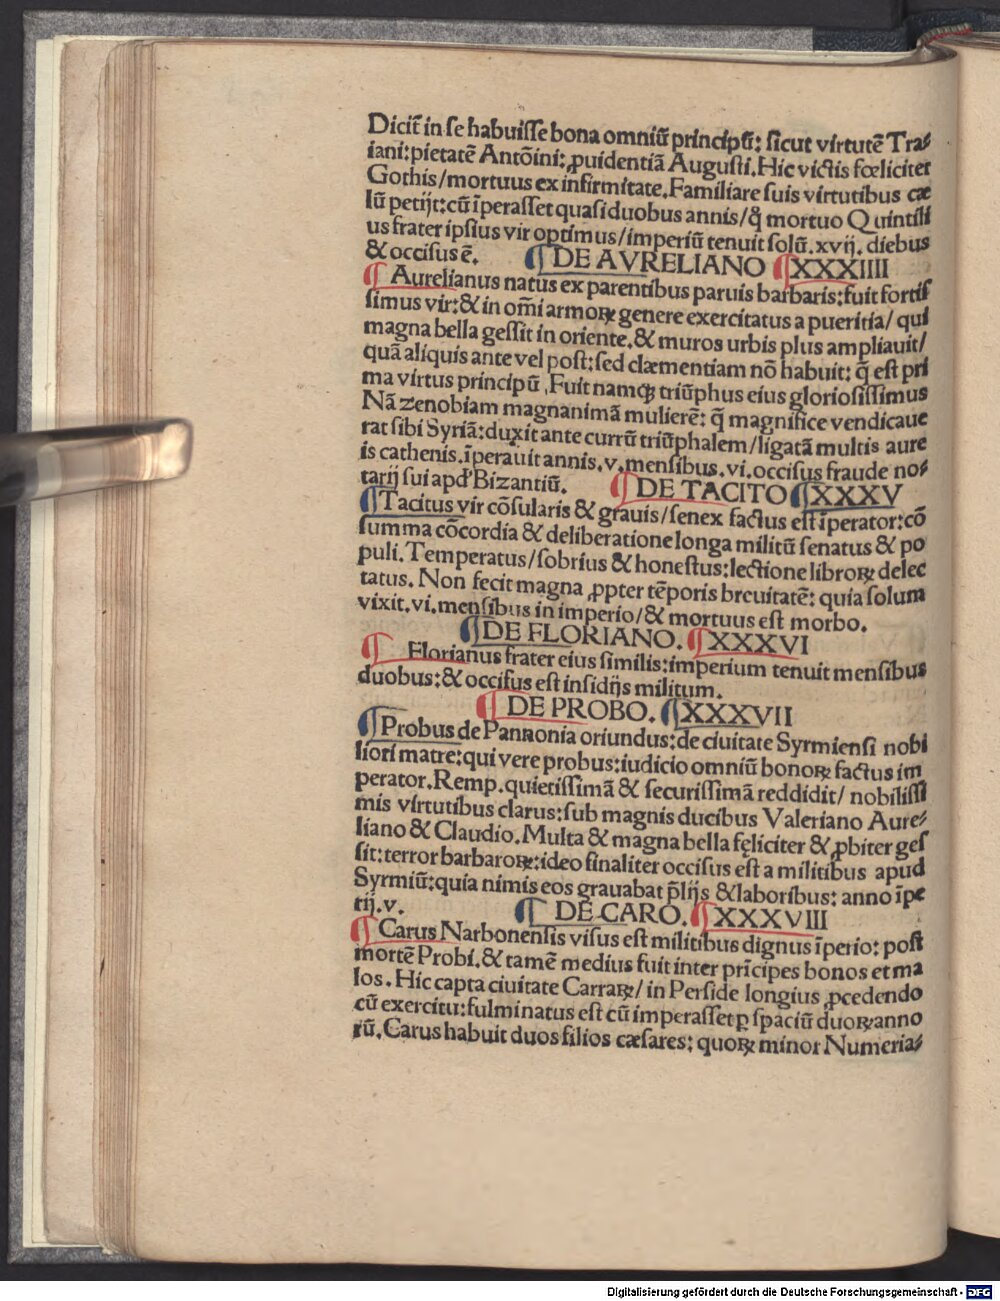 Dicit̃ in se habuisse bona omniũ principũ: sicut virtutẽ Tra⸗
iani: pietatẽ Antõini: ꝓuidentiã Augusti. Hic victis fœliciter
Gothis/mortuus ex infirmitate. Familiare suis virtutibus cæ
lũ petijt: cũ ĩperasset quasi duobus annis/ q̃ mortuo Quintili
us frater ipsius vir optimus/ imperiũ tenuit solũ. xvij. diebus
& occisus ẽ. ¶ DE AVRELIANO ¶ XXXIIII
¶ Aurelianus natus ex parentibus paruis barbaris: fuit fortis
simus vir: & in om̃i armoꝝ genere exercitatus a pueritia/ qui
magna bella gessit in oriente. & muros urbis plus ampliauit/
quã aliquis ante vel post: sed clæmentiam nõ habuit: q̃ est pri
ma virtus principũ. Fuit namqꝫ triũphus eius gloriosissimus
Nã zenobiam magnanimã mulierẽ: q̃ magnifice vendicaue
rat sibi Syriã: duxit ante currũ triũphalem/ligatã multis aure
is cathenis. ĩperauit annis. v. mensibus. vi. occisus fraude no⸗
tarij sui apđ Bizantiũ. ¶ DE TACITO ¶ XXXV
¶ Tacitus vir cõsularis & grauis/senex factus est ĩperator: cõ
summa cõcordia & deliberatione longa militũ senatus & po
puli. Temperatus/sobrius & honestus: lectione libroꝝ delec
tatus. Non fecit magna ꝓpter tẽporis breuitatẽ: quia solum
vixit. vi. mensibus in imperio/& mortuus est morbo.
¶ DE FLORIANO. ¶ XXXVI
¶ Florianus frater eius similis: imperium tenuit mensibus
duobus: & occisus est insidijs militum.
¶ DE PROBO. ¶ XXXVII
¶ Probus de Pannonia oriundus: de ciuitate Syrmiensi nobi
liori matre: qui vere probus: iudicio omniũ bonoꝝ factus im
perator. Remp. quietissimã & securissimã reddidit/ nobilissi
mis virtutibus clarus: sub magnis ducibus Valeriano Aure⸗
liano & Claudio. Multa & magna bella fęliciter & ꝓbiter ges
sit: terror barbaroꝝ: ideo finaliter occisus est a militibus apud
Syrmiũ: quia nimis eos grauabat p̃lijs & laboribus: anno ĩpe
rij. v. ¶ DE CARO. ¶ XXXVIII
¶ Carus Narbonensis visus est militibus dignus ĩperio: post
mortẽ Probi. & tamẽ medius fuit inter prĩcipes bonos et ma
los. Hic capta ciuitate Carraꝝ/ in Perside longius ꝓcedendo
cũ exercitu: fulminatus est cũ imperasset ꝑ spaciũ duoꝝ anno
rũ. Carus habuit duos filios cæsares: quoꝝ minor Numeria⸗
Digitalisierung gefördert durch die Deutsche Forschungsgemeinschaft - DFG